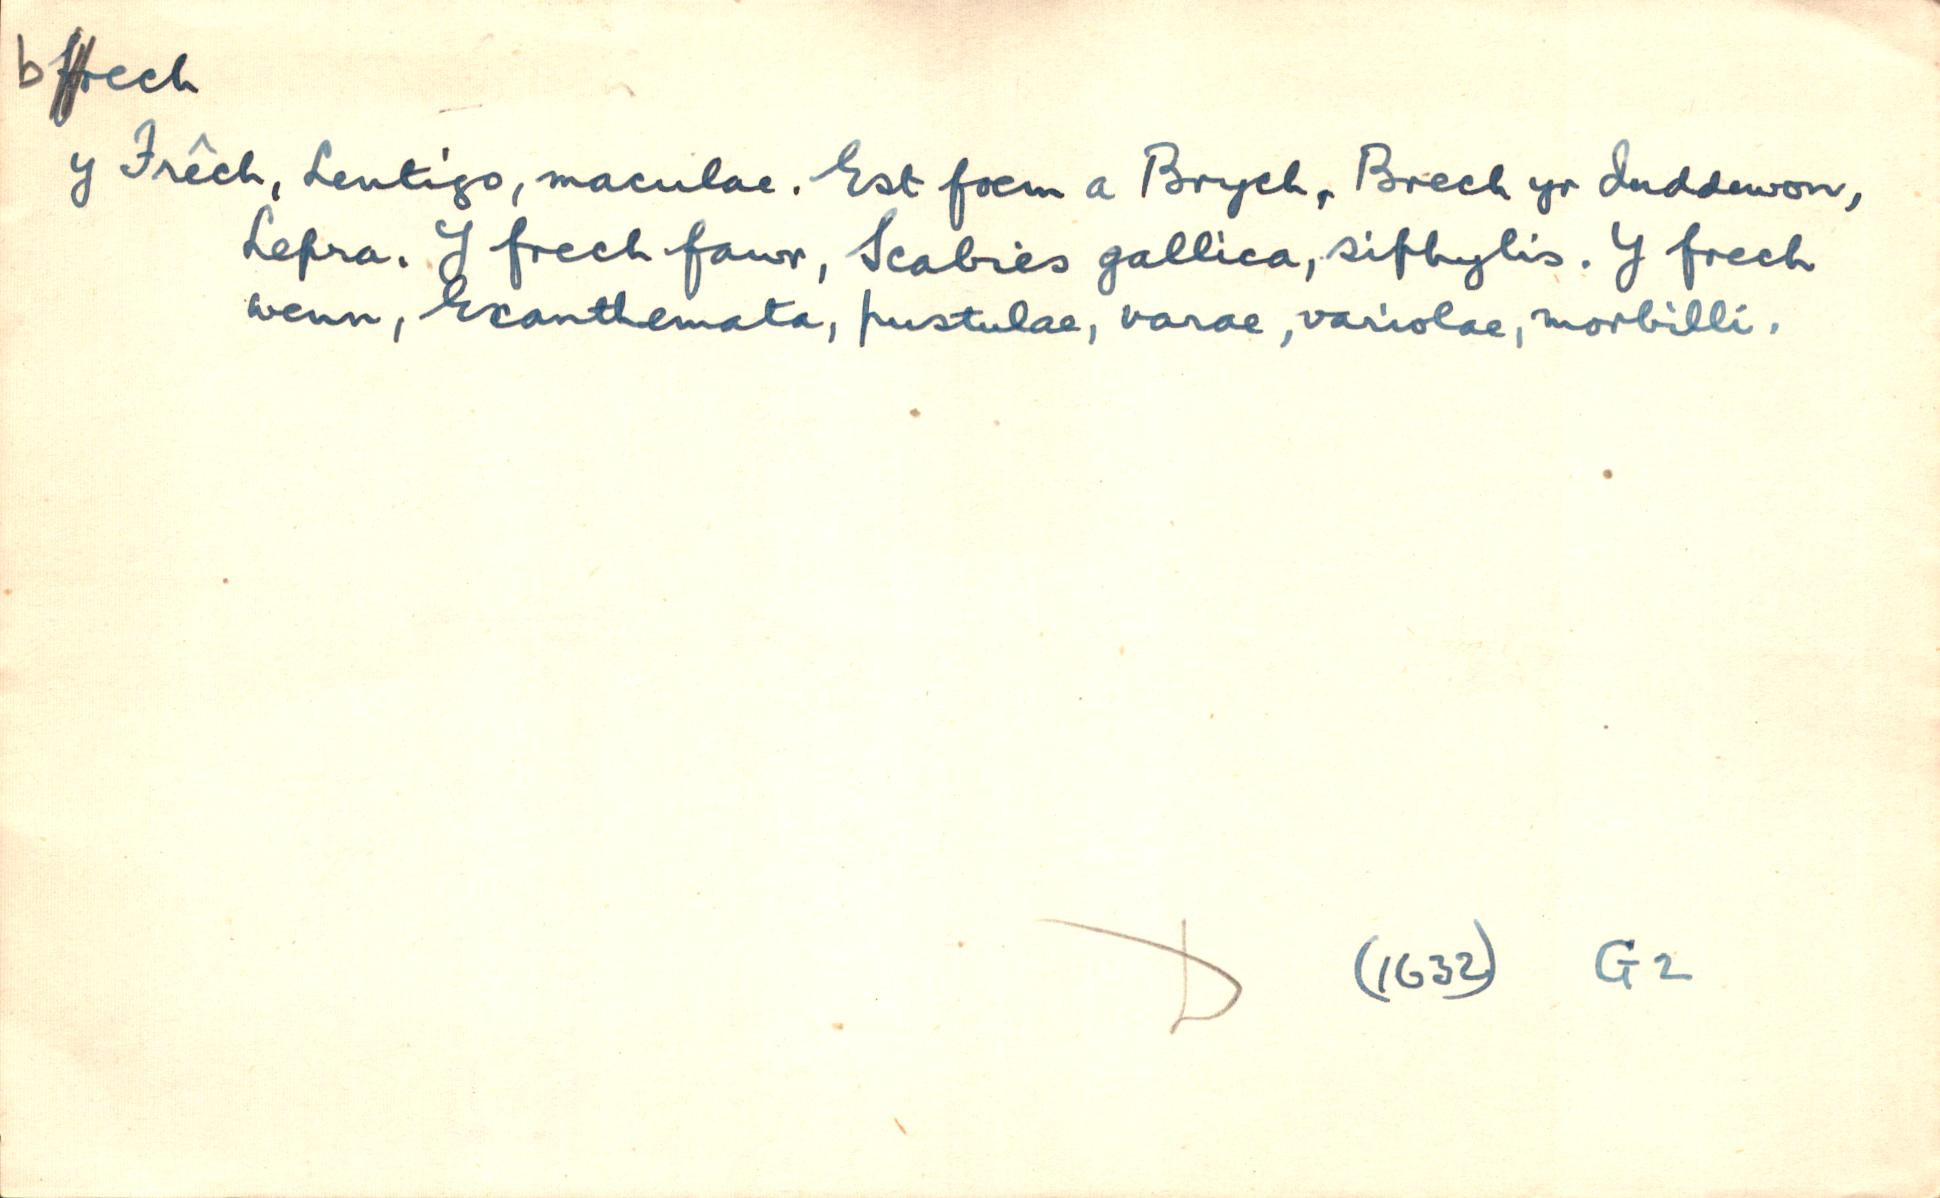 brech
y Frêch, Lentigo, maculae. Est foem a Brych. Brech yr Iuddewon,
Lepra. Y frech fawr, Scabies gallica, siphylis. Y frech
wenn, Exanthemata, pustulae, varae, variolae, morbilli.
D (1632) G2